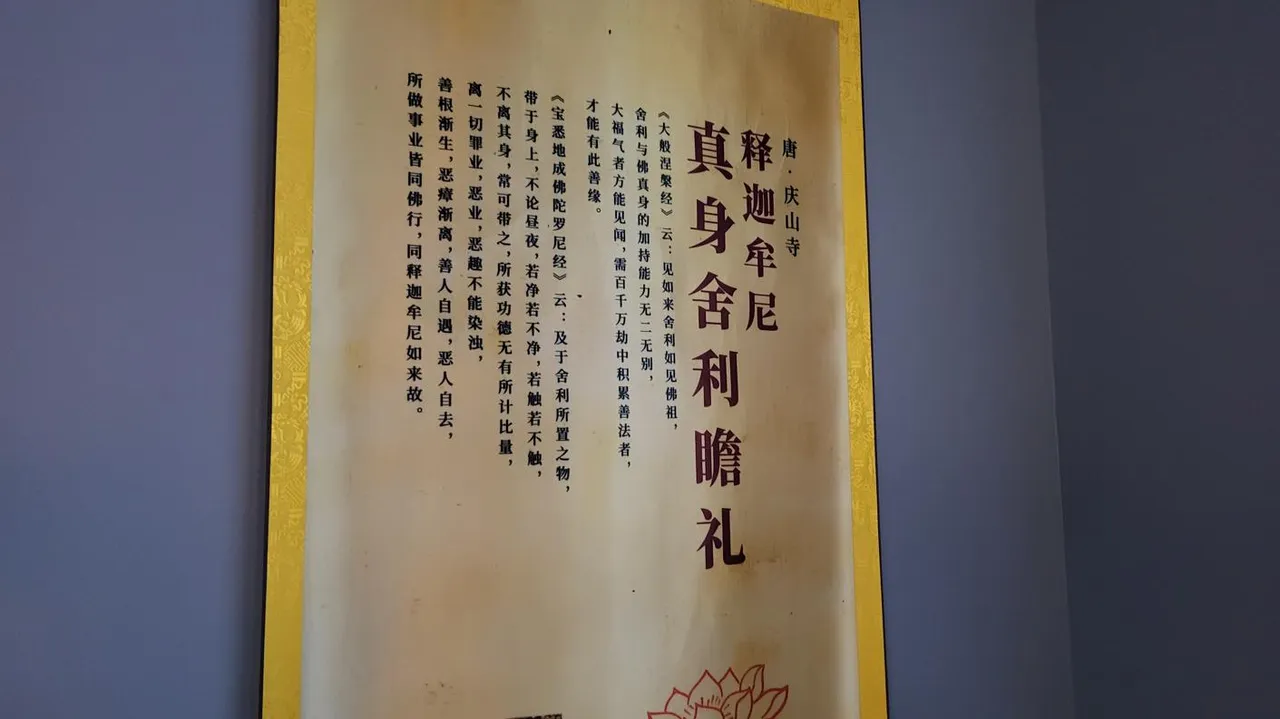 唐·庆山寺
释迦牟尼
真身舍利瞻礼
《大般涅槃经》云：见如来舍利如见佛祖，
舍利与佛真身的加持能力无二无别，
大福气者方能见闻，需百千万劫中积累善法者，
才能有此善缘。
《宝悉地成佛陀罗尼经》云：及于舍利所置之物，
带于身上，不论昼夜，若净若不净，若触若不触，
不离其身，常可带之，所获功德无有所计比量，
离一切罪业，恶业，恶趣不能染浊，
善根渐生，恶瘴渐离，善人自遇，恶人自去，
所做事业皆同佛行，同释迦牟尼如来故。